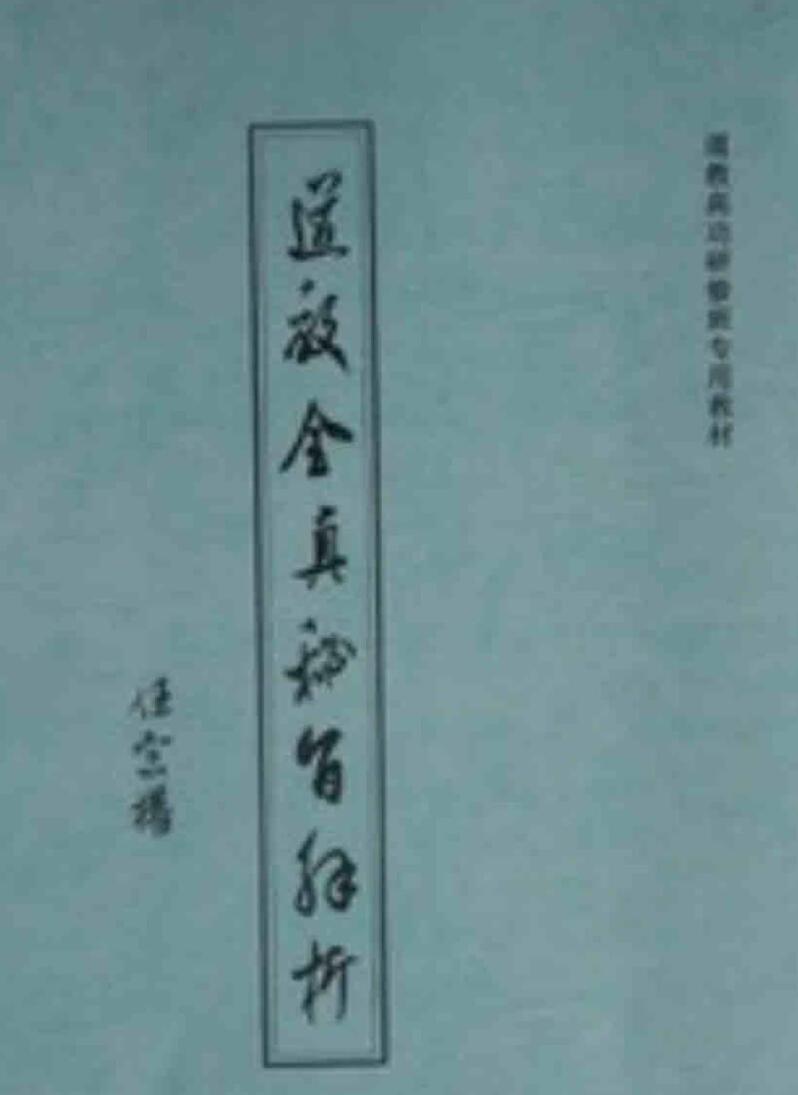 道教高功研修班专用教材
道教全真秘旨解析
任宗權